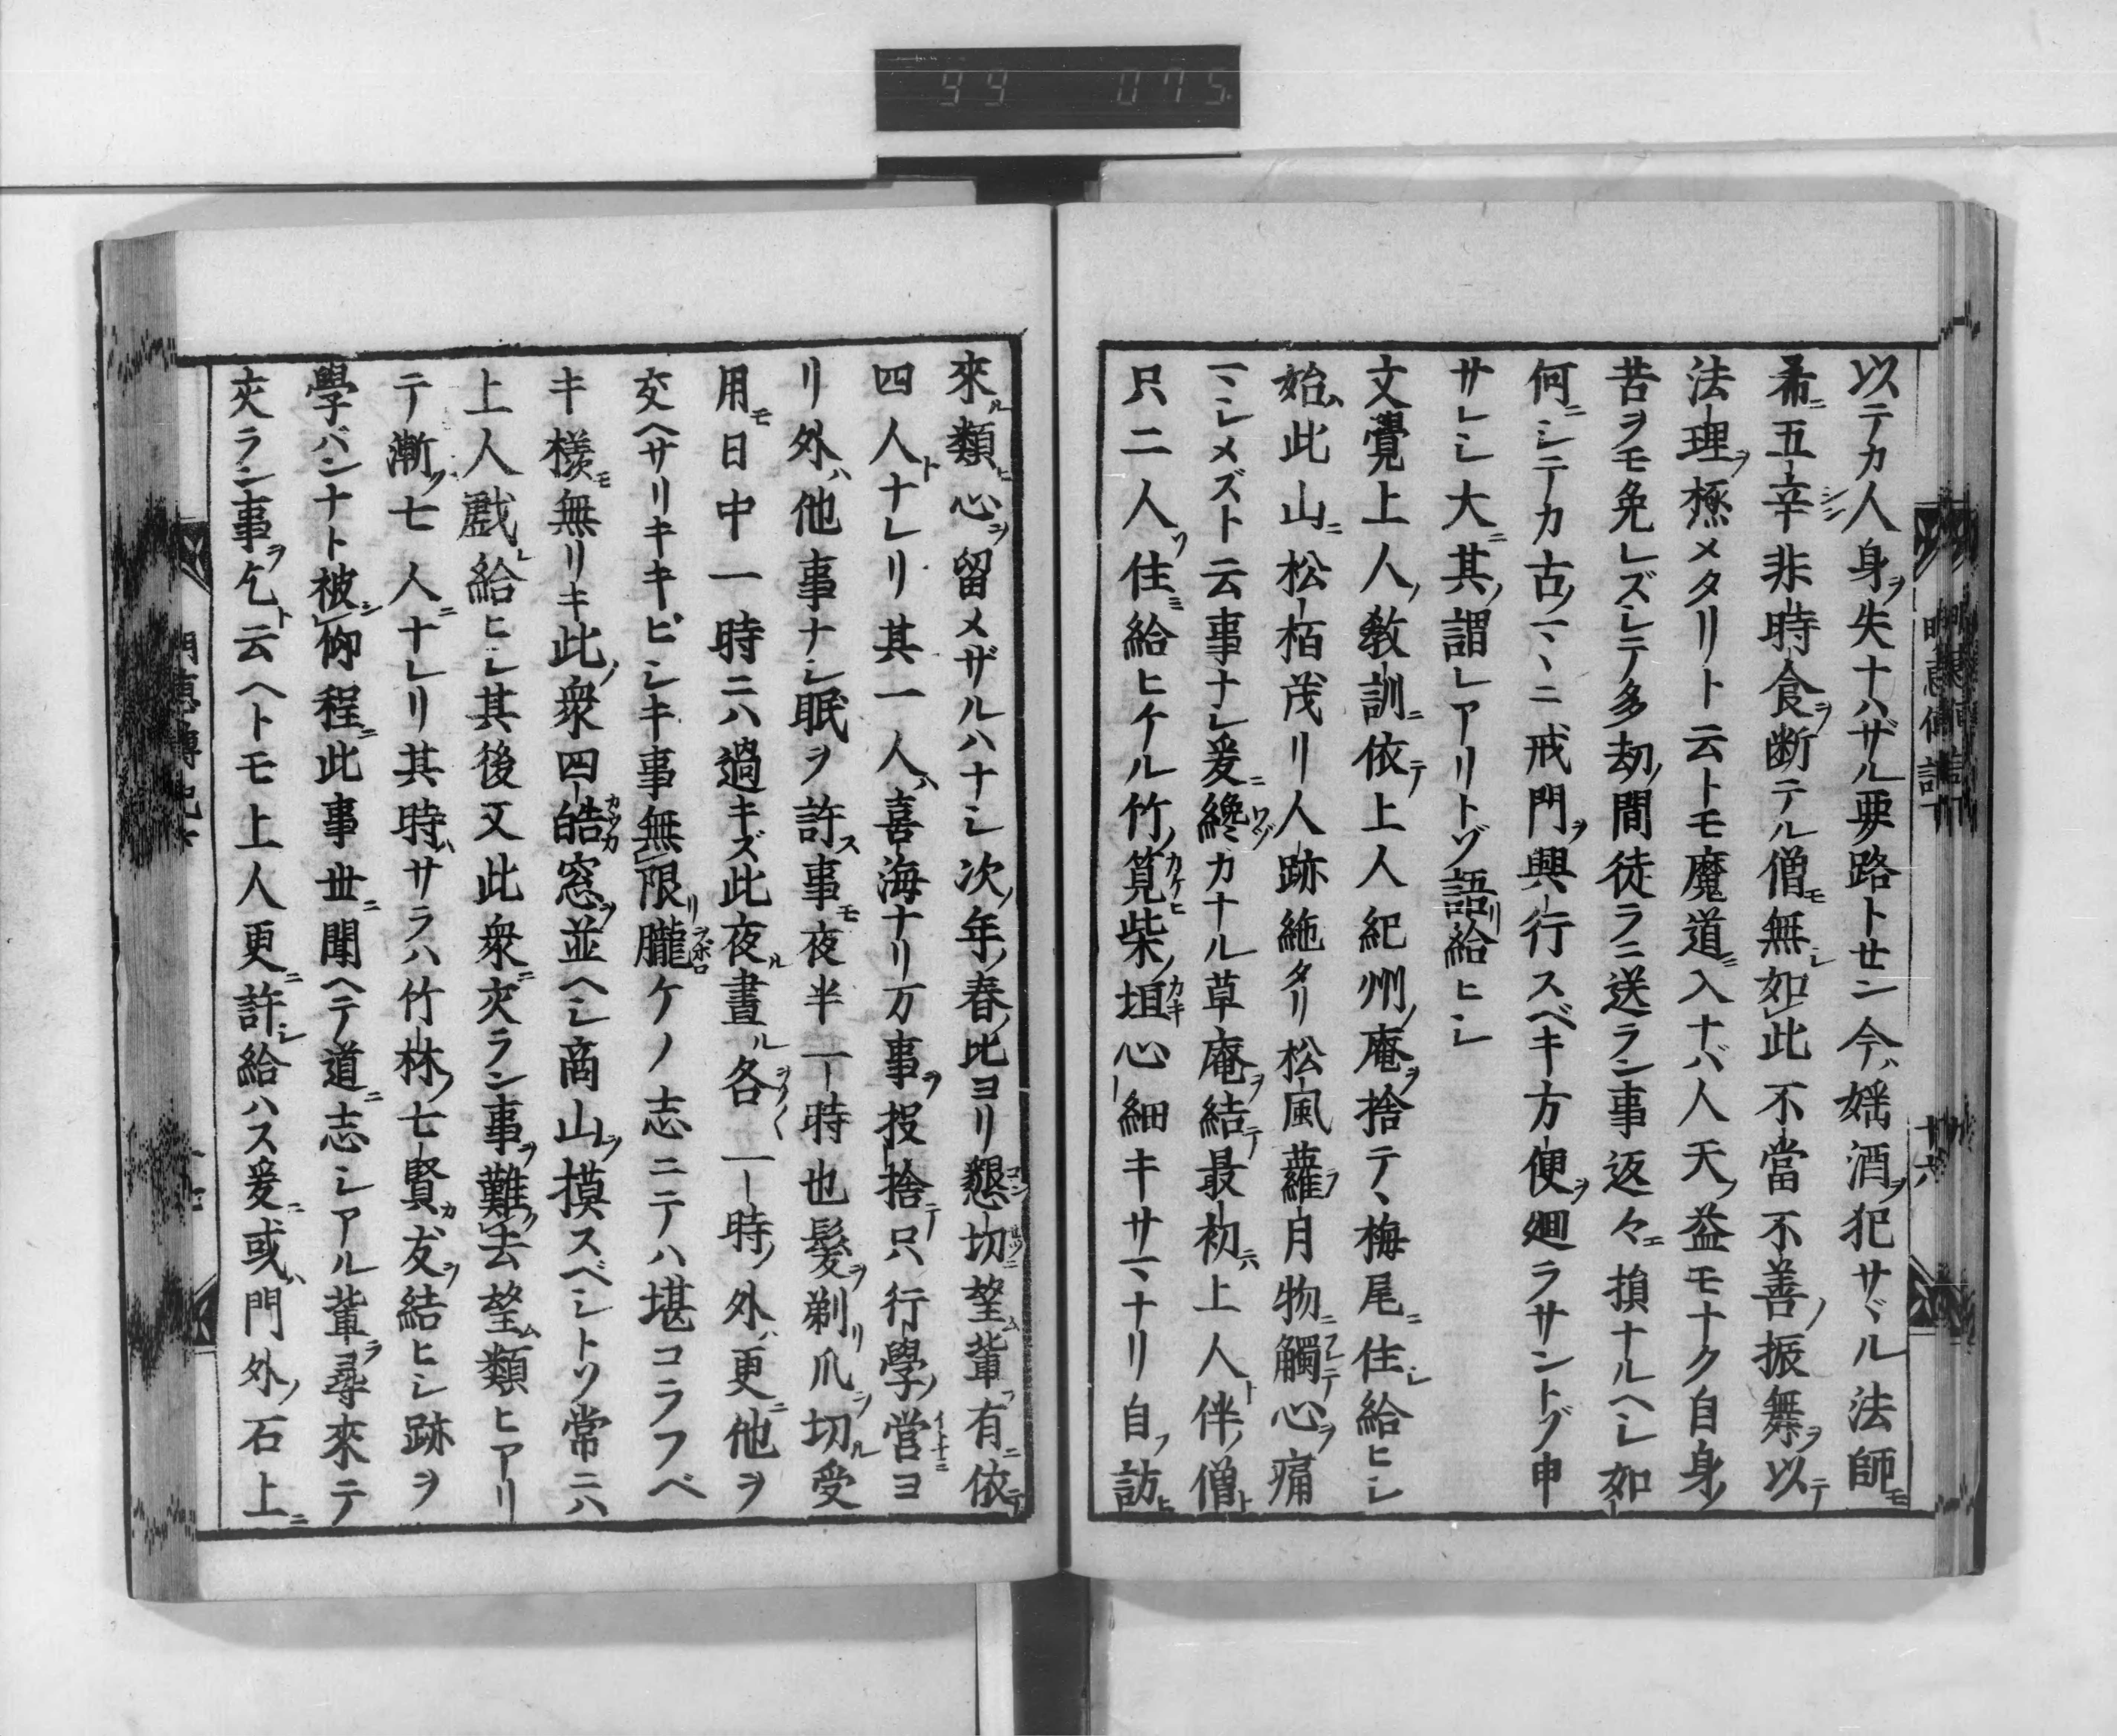 99 075
以テカ人身ヲ失ナハザル要路トセン今ハ婬酒ヲ犯サヾル法師モ
希ニ五辛非時食ヲ断テル僧モ無シ如此不當不善ノ振舞ヲ以テ
法理ヲ極メタリト云トモ魔道ニ入ナバ人天ノ益モナク自身ノ
苦ヲモ免レズシテ多劫ノ間徒ラニ送ラン事返々エ損ナルヘレ如
何ニシテカ古ノマヽニ戒門ヲ興行スベキ方便ヲ廻ラサントゾ申
サレシ大ニ其ノ謂レアリトゾ語リ給ヒシ
文覺上人ノ教訓ニ依テ上人紀州ノ庵ヲ捨テヽ梅尾ニ住シ給ヒシ
始ム此山ニ松栢茂リ人跡絁タリ松風蘿ラ月物ニ觸フレテ心ヲ痛
マシメズト云事ナレ爰ニ纔ワヅカナル草庵ヲ結テ最初ニハ上人ト伴ノ僧ト
只二人ワ住ミ給ヒケル竹ノ筧カケヒ柴ノ垣カキ心細キサマナリ自ノ訪ヒ
來ル類ヒ心ヲ留メザルハナシ次ノ年ノ春ノ比ヨリ懇コン切セツニ望ム輩ラ有ニ依テ
四人トナレリ其一人ハ喜海ナリ万事ヲ投捨テ只行學ノ営イトナミヨ
リ外ハ他事ナシ眠ヲ許ス事モ夜半一時也髪ヲ剃リ爪ヲ切ル受
用モ日中一時ニハ過キズ此夜ル晝ル各ヲ〱一時ノ外ハ更ニ他ヲ
交ヘサリキキビシキ事無限リ朧ヲボロケノ志ニテハ堪コラフベ
キ様モ無リキ此ノ衆四皓カウカ窓ヲ並ヘシ商山ヲ摸スベシトソ常ニハ
上人戲レ給ヒシ其後又此衆ニ交ラン事ヲ難ク去望ム類ヒアリ
テ漸ク七人ニナレリ其時ムサラハ竹林ノ七賢カ友ヲ結ヒシ跡ヲ
學バンナト被シ仰程ニ此事世ニ聞ヘテ道ニ志シアル輩ラ尋來テ
交ラン事ヲ乞ト云ヘトモ上人更ニ許シ給ハス爰ニ或ハ門外ノ石上ニ
明恵傳記下
十六